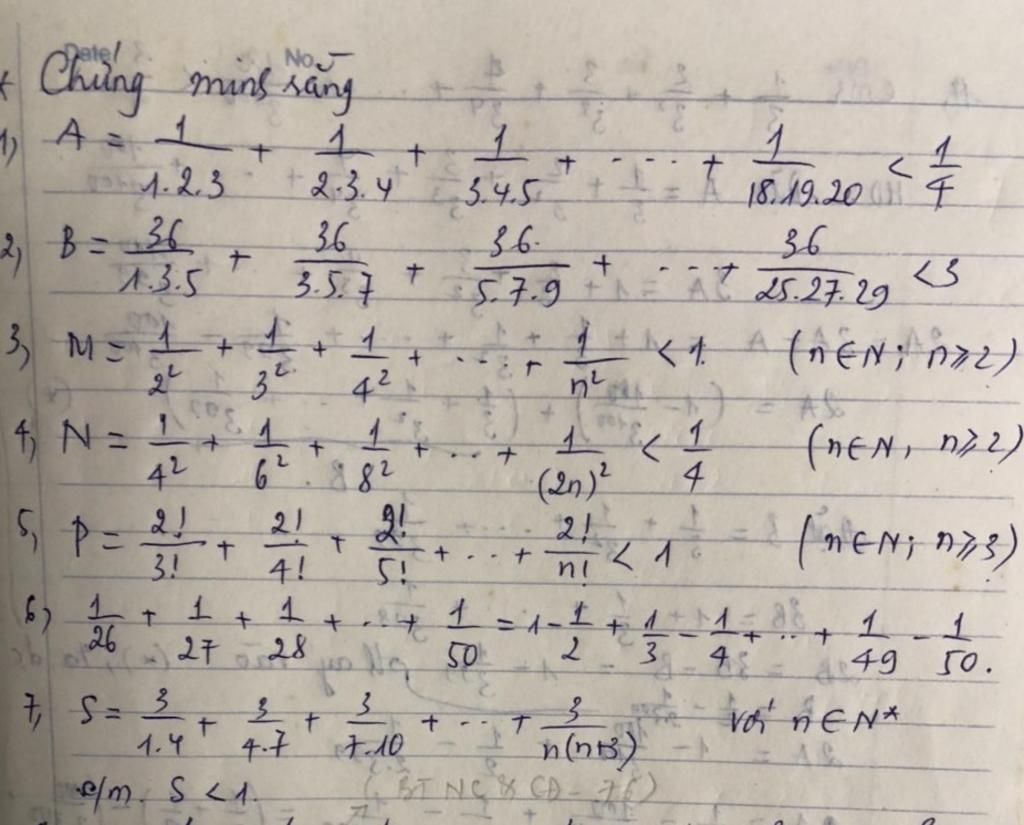 Date! No.
* Chứng minh rằng
1) A = 1/1.2.3 + 1/2.3.4 + 1/3.4.5 + .... + 1/18.19.20 < 1/4
2) B = 36/1.3.5 + 36/3.5.7 + 36/5.7.9 + ...+ 36/25.27.29 < 3
3) M = 1/2² + 1/3² + 1/4² + ... + 1/n² < 1. (n ∈ N; n ≥ 2)
4) N = 1/4² + 1/6² + 1/8² + ... + 1/(2n)² < 1/4 (n ∈ N, n ≥ 2)
5) P = 2!/3! + 2!/4! + 2!/5! + ... + 2!/n! < 1 (n ∈ N; n ≥ 3)
6) 1/26 + 1/27 + 1/28 + ... + 1/50 = 1 - 1/2 + 1/3 - 1/4 + ... + 1/49 - 1/50.
7) S = 3/1.4 + 3/4.7 + 3/7.10 + ... + 3/n(n+3) với n ∈ N*
c/m. S < 1.